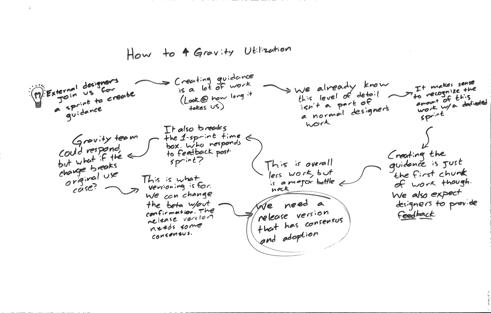 How to ↑ Gravity Utilization
External designers
join us for
a sprint to create
guidance
Creating guidance
is a lot of work
(Look @ how long it
takes us)
We already know
this level of detail
isn't a part of
a normal designers
work
It makes sense
to recognize the
amount of this
work w/a dedicated
sprint
Creating the
guidance is just
the first chunk
of work though.
We also expect
designers to provide
feedback
This is overall
less work, but
is a major bottle
neck
It also breaks
the 1-sprint time
box. Who responds
to feedback post
sprint?
Gravity team
could respond,
but what if the
change breaks
original use
case?
This is what
versioning is for.
We can change
the beta w/out
confirmation. The
release version
needs some
consensus.
We need a
release version
that has consensus
and adoption